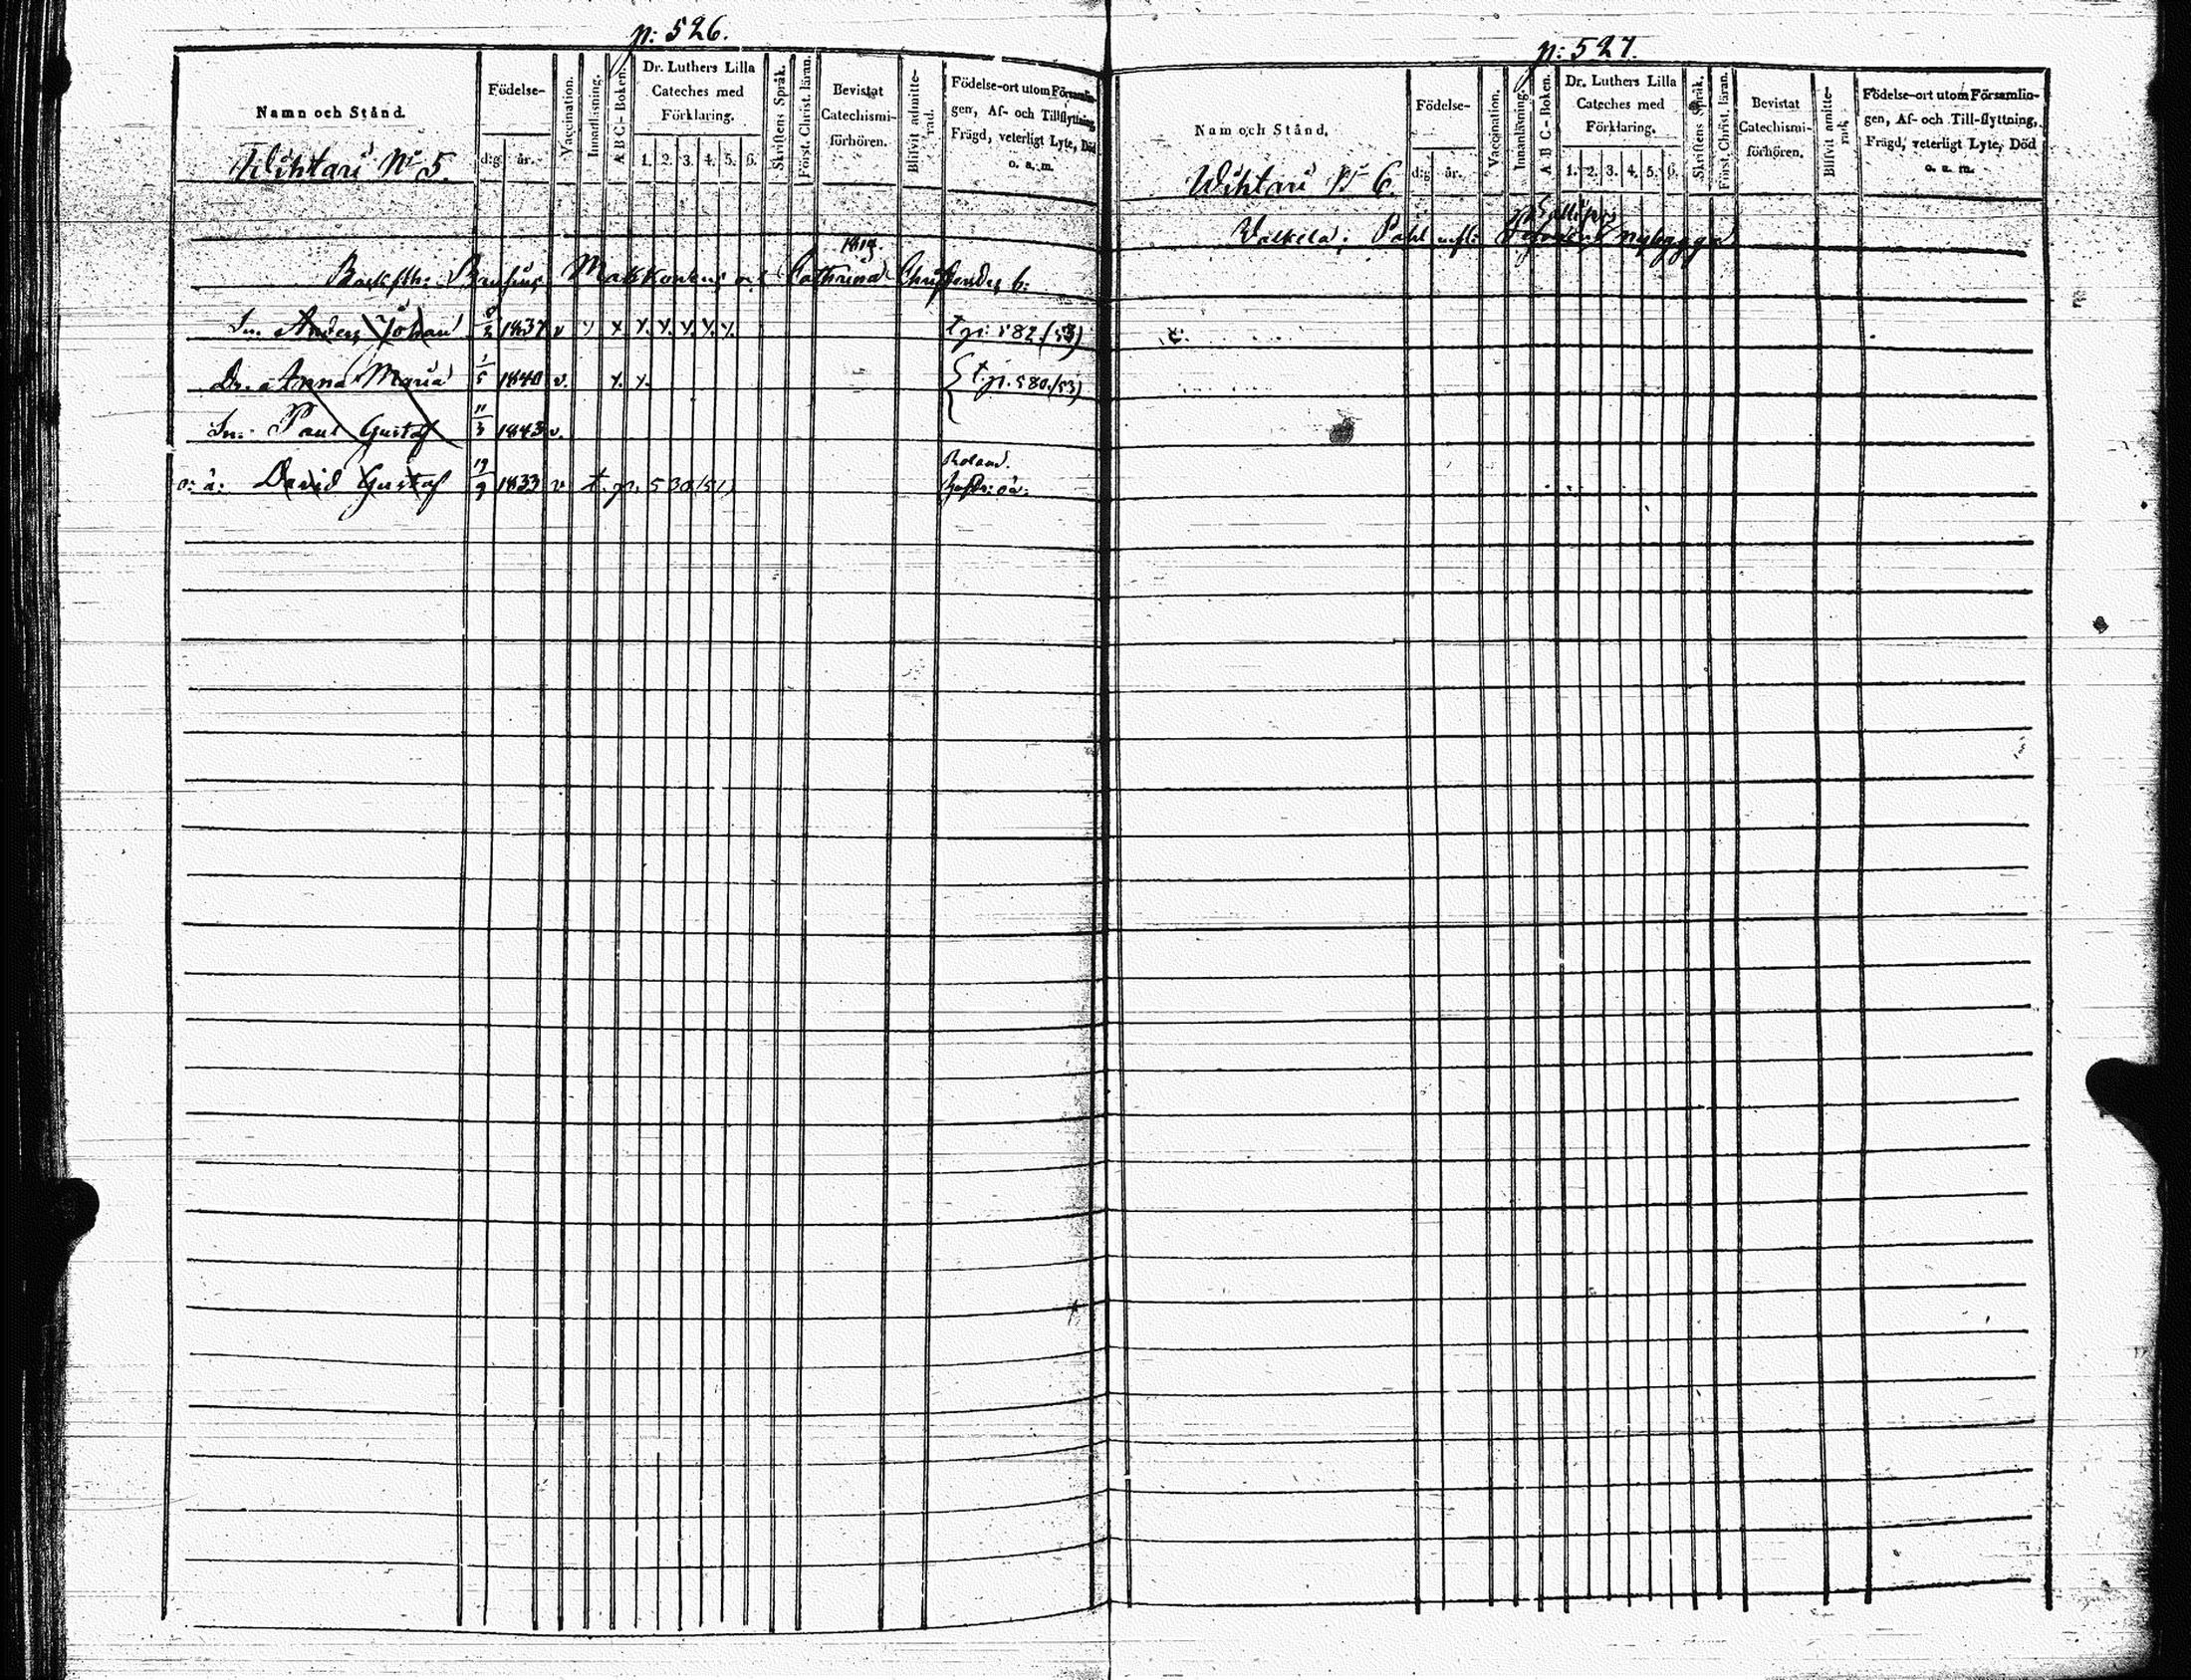 p: 526.
Namn och Stånd.
Födelse-
dig. år.
Vaccination.
Innanläsning.
A B C-Boken.
Dr. Luthers Lilla
Cateches med
Förklaring.
1. 2. 3. 4. 5. 6.
Skriftens Språk.
Först. Christ. läran.
Bevistat
Catechismi-
förhören.
Blifvit admitte-
rad.
Födelse-ort utom Församlin-
gen, Af- och Tillflyttning,
Frägd, veterligt Lyte, Död
o. a. m.
Wihtari No 5.
1819.
Makkonens Cathrina b:
Sn. Anders Johan 1837 v t p: 582 (53)
Dr. Anna Maria 1/5 1840 v. t. p. 580. (53)
Sn: Paul Gustaf 11/3 1843 v.
David Gustaf 19/9 1833 v t. p. 530 (51)
p: 527.
Namn och Stånd.
Födelse-
dig. år.
Vaccination.
Innanläsning.
A B C-Boken.
Dr. Luthers Lilla
Cateches med
Förklaring.
1. 2. 3. 4. 5. 6.
Skriftens Språk.
Först. Christ. läran.
Bevistat
Catechismi-
förhören.
Blifvit amitte-
rad.
Födelse-ort utom Församlin-
gen, Af- och Till-flyttning,
Frägd, veterligt Lyte, Död
o. a. m.
Wihtari No 6.
nybygge